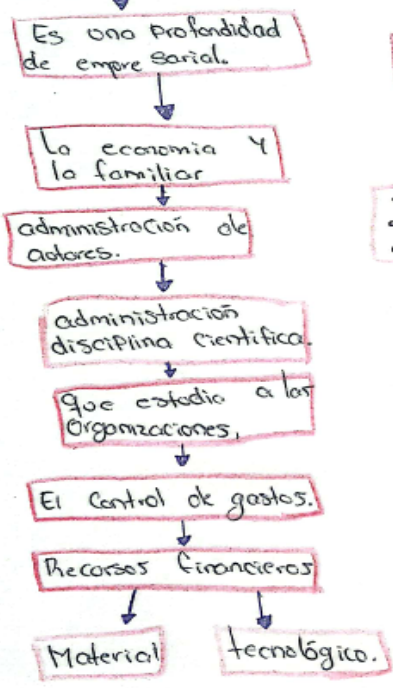 Es una Profondidad
de empresarial.
La economia Y
la familiar
administración de
adores.
administración
disciplina científica.
que estudia a las
Organizaciones,
El Control de gastos.
Recorsos financieros
Material
tecnológico.